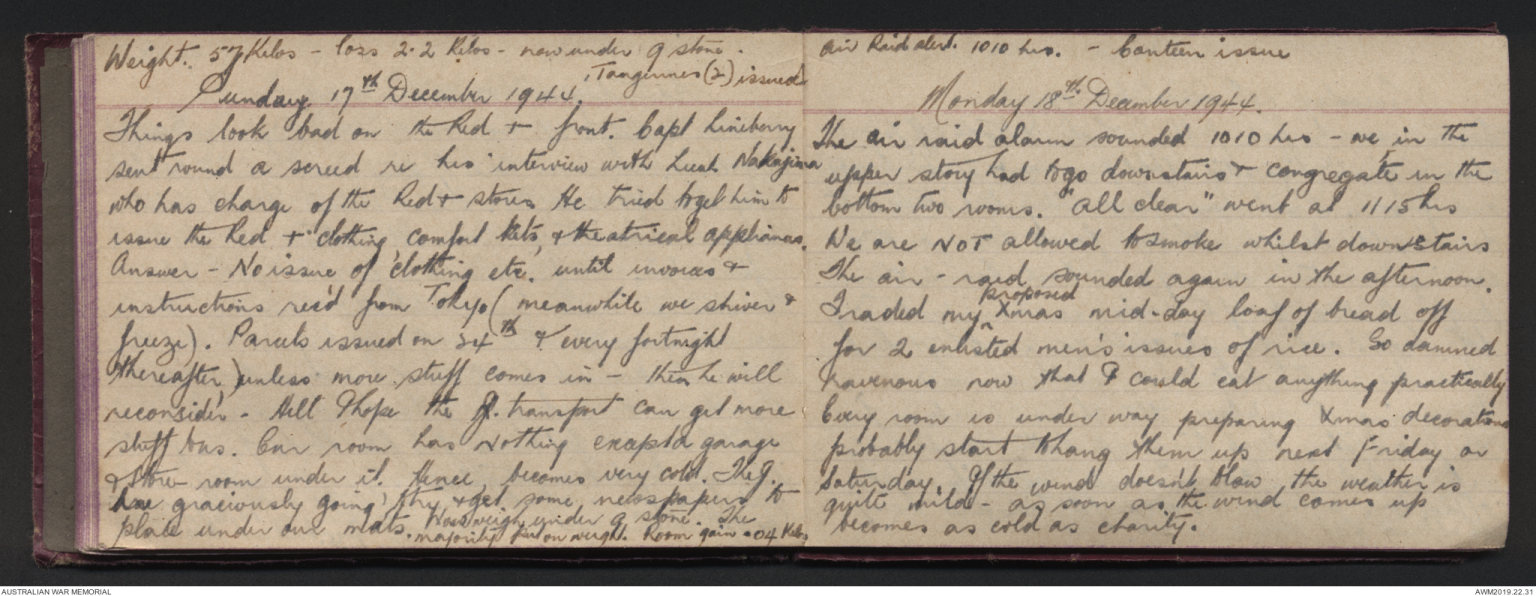 Weight. 57 Kilos - loss 2.2 Kilos - now under 9 stone.
Tangerines (2) issued
Sunday 17th December 1944.
Things look bad on the Red + front. Capt Lineberry
sent round a screed re his interview with Lieut Nakajima
who has charge of the Red + stores. He tried to get him to
issue the Red + clothing, comfort kits, & theatrical appliances.
Answer - No issue of clothing etc. until invoices &
instructions rec'd from Tokyo (meanwhile we shiver &
freeze). Parcels issued on 24th & every fortnight
thereafter, unless more stuff comes in - then he will
reconsider - Hell I hope the J. transport can get more
stuff thru. Our room has nothing except a garage
& store-room under it. Hence, becomes very cold. The J.
are graciously going try & get some newspapers to
place under our mats. Now weigh under 9 stone. The
majority on weight. Room gain .04 Kilos
Air Raid alert. 1010 hrs. - Canteen issue
Monday 18th December 1944.
The air raid alarm sounded 1010 hrs - we in the
upper story had to go downstairs & congregate in the
bottom two rooms. "All clear" went at 1115 hrs
We are NOT allowed to smoke whilst downstairs
The air-raid sounded again in the afternoon.
proposed
Traded my ^ Xmas mid-day loaf of bread off
for 2 enlisted men's issues of rice. So damned
ravenous now that I could eat anything practically
Every room is under way preparing Xmas decorations
probably start to hang them up next Friday or
Saturday. If the wind doesn't blow the weather is
quite mild - as soon as the wind comes up
becomes as cold as charity.
AUSTRALIAN WAR MEMORIAL
AWM2019.22.31